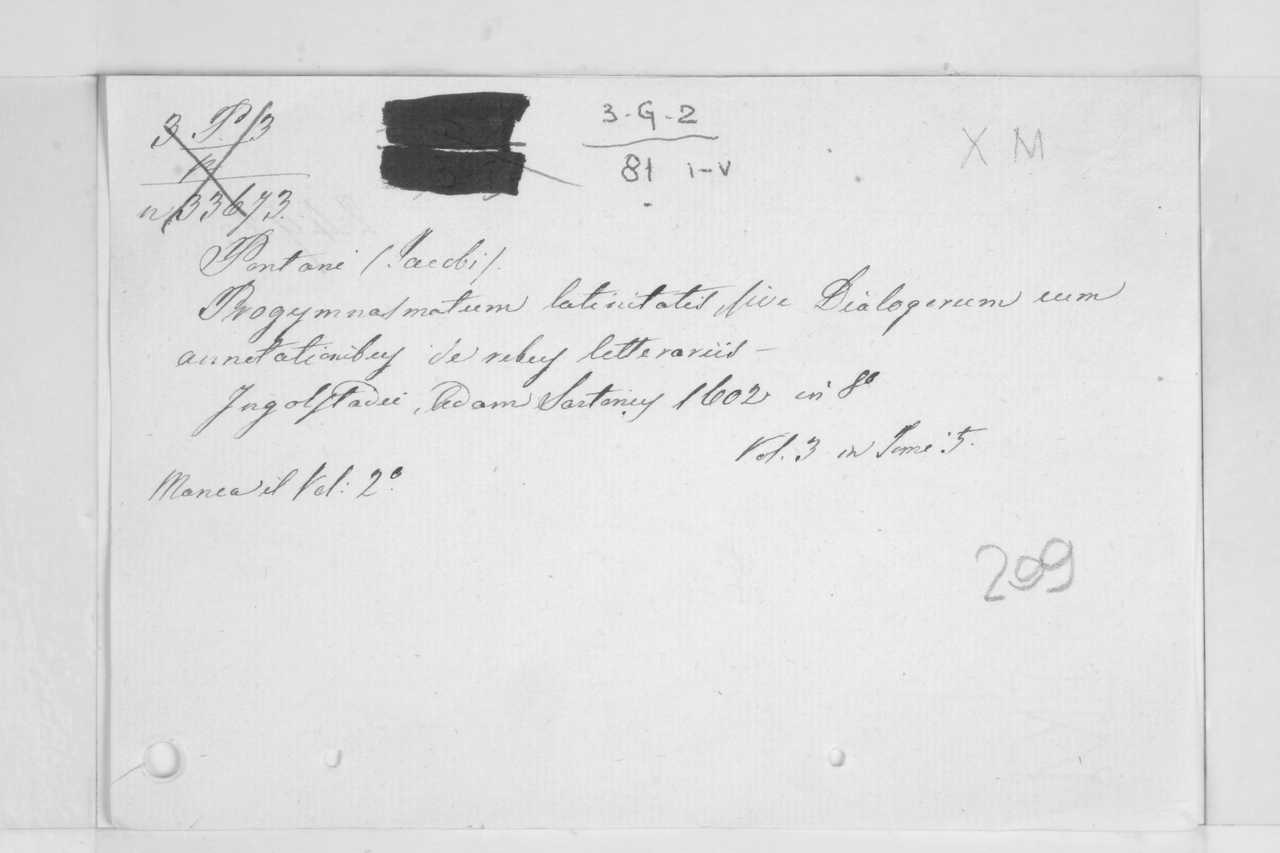 3-G-2
81 i-v
X M
n, 33673.
Pontani (Jacobi).
Progymnasmatum latinitatis, sive Dialogorum cum
annotationibus de rebus letterariis -
Ingolstadii, Adam Sartorius 1602 in 8°
Vol. 3 in Tomi 5.
Manca il Vol: 2°.
209